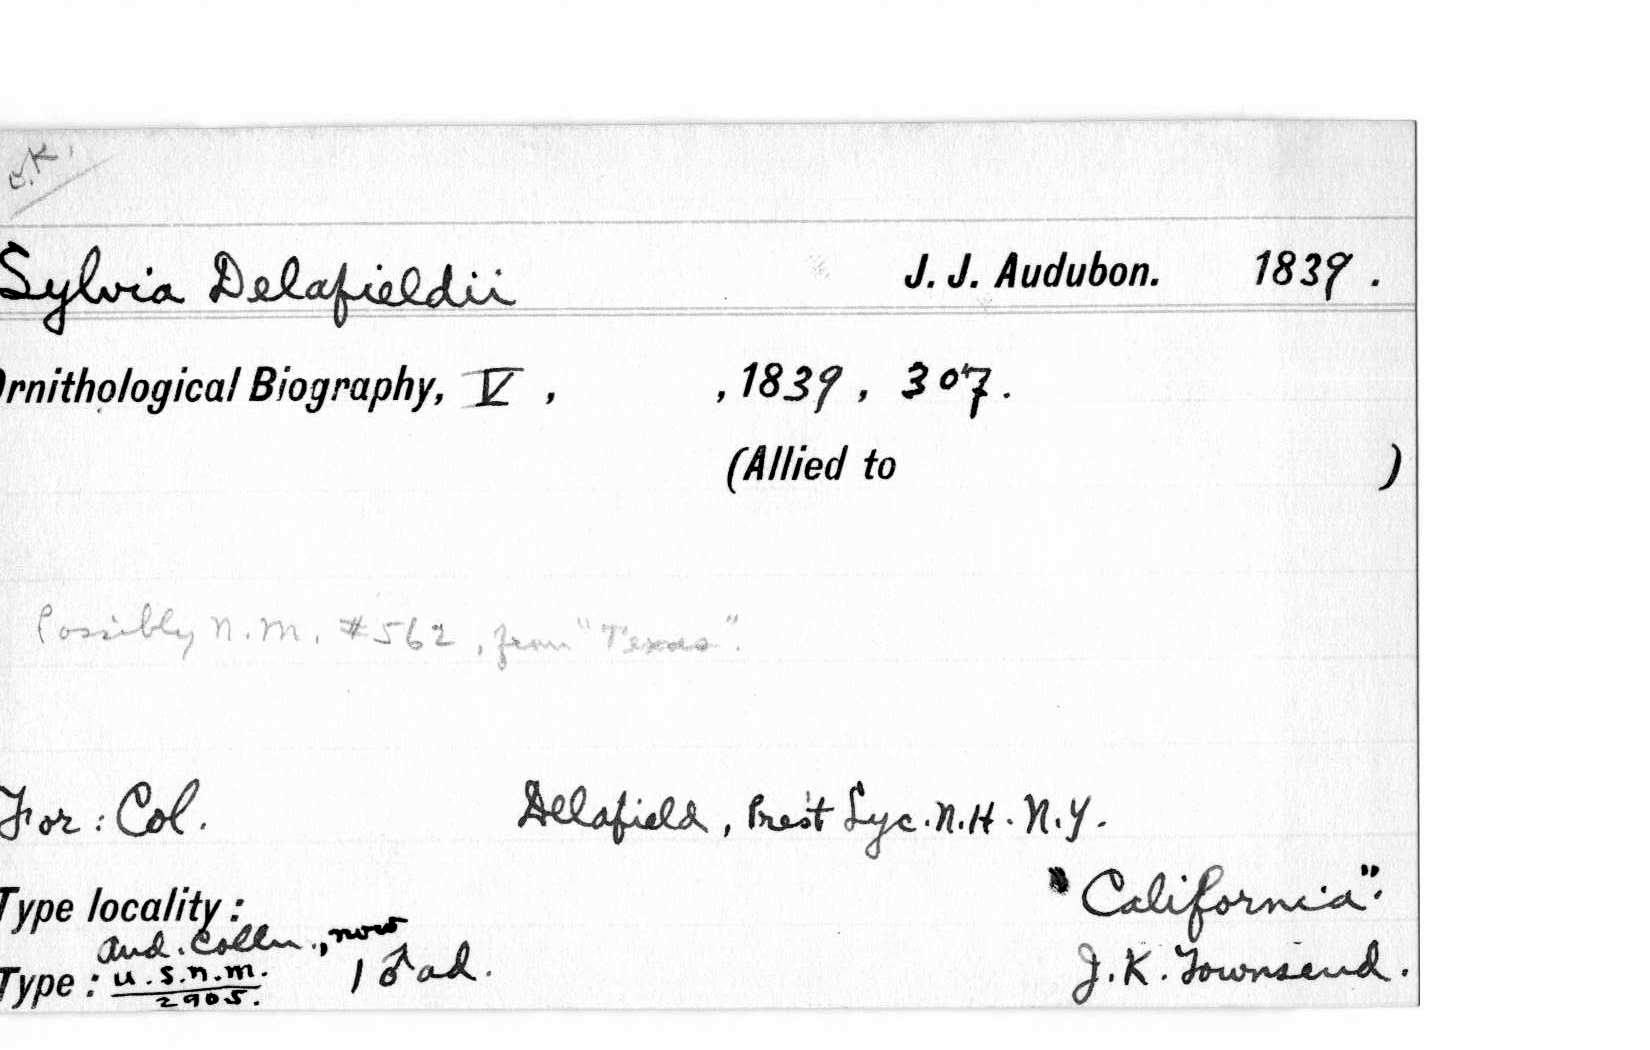 O.K.
Sylvia Delafieldii J. J. Audubon. 1839.
Ornithological Biography, V, , 1839, 307.
(Allied to )
Possibly N.M. #562, from "Texas".
For: Col. Delafield, Pres't Lyc. N.H. N.Y.
Type locality: "California".
Aud. Colln., now
Type: U.S.N.M. 1 ♂ ad. J.K. Townsend.
2905.